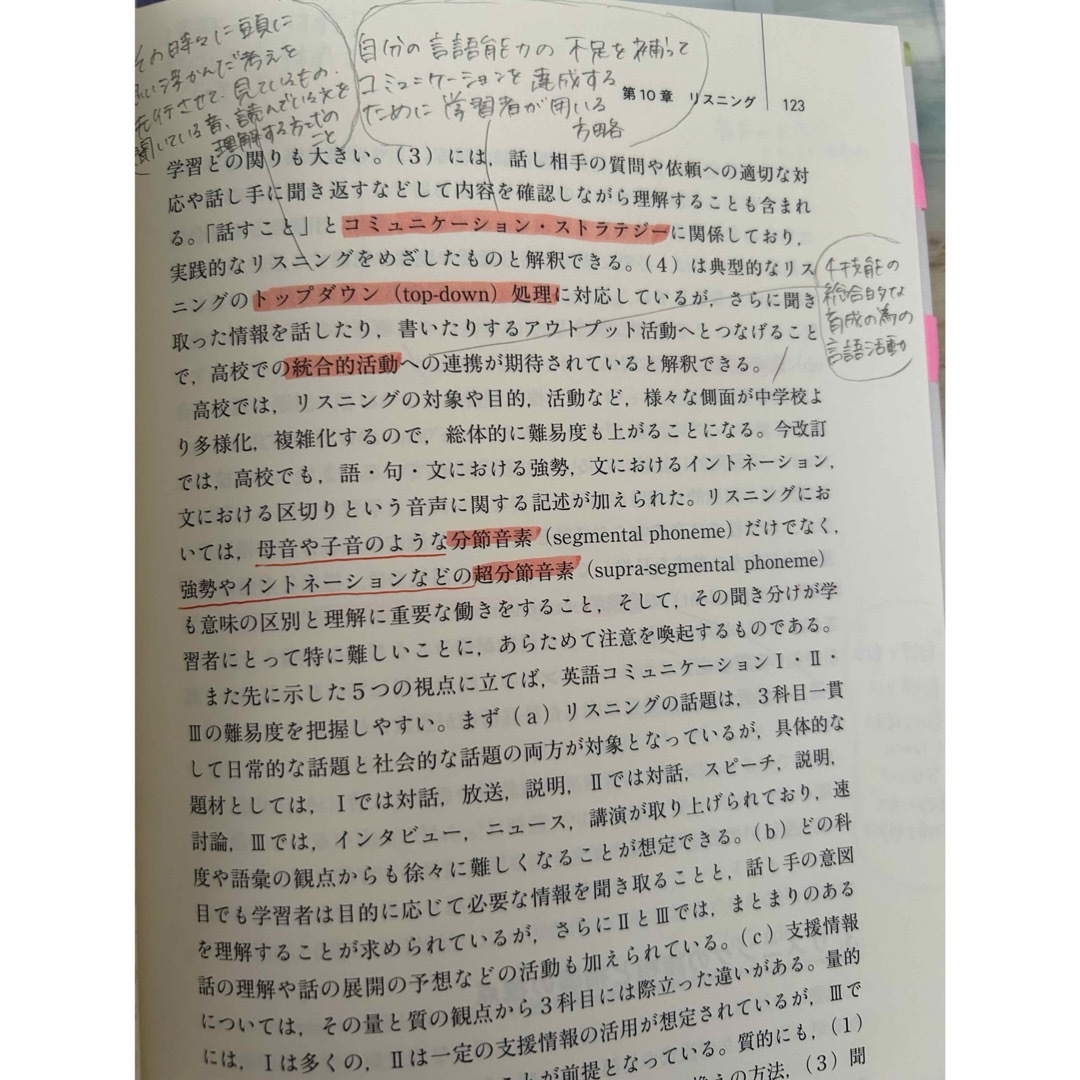 その時々に頭に
思い浮かんだ考えを
先行させて、見ているもの、
聞いている音、読んでいる文を
理解する方法の
こと
自分の言語能力の不足を補って
コミュニケーションを達成する
ために学習者が用いる
方略
第10章 リスニング 123
学習との関りも大きい。(3)には，話し相手の質問や依頼への適切な対
応や話し手に聞き返すなどして内容を確認しながら理解することも含まれ
る。「話すこと」とコミュニケーション・ストラテジーに関係しており，
実践的なリスニングをめざしたものと解釈できる。(4)は典型的なリス
ニングのトップダウン（top-down）処理に対応しているが，さらに聞き
取った情報を話したり，書いたりするアウトプット活動へとつなげること
で，高校での統合的活動への連携が期待されていると解釈できる。
4技能の
総合的な
育成の為の
言語活動
高校では，リスニングの対象や目的，活動など，様々な側面が中学校よ
り多様化，複雑化するので，総体的に難易度も上がることになる。今改訂
では，高校でも，語・句・文における強勢，文におけるイントネーション，
文における区切りという音声に関する記述が加えられた。リスニングにお
いては，母音や子音のような分節音素（segmental phoneme）だけでなく，
強勢やイントネーションなどの超分節音素（supra-segmental phoneme）
も意味の区別と理解に重要な働きをすること，そして，その聞き分けが学
習者にとって特に難しいことに，あらためて注意を喚起するものである。
また先に示した5つの視点に立てば，英語コミュニケーションⅠ・Ⅱ・
Ⅲの難易度を把握しやすい。まず(a)リスニングの話題は，3科目一貫
して日常的な話題と社会的な話題の両方が対象となっているが，具体的な
題材としては，Ⅰでは対話，放送，説明，Ⅱでは対話，スピーチ，説明，
討論，Ⅲでは，インタビュー，ニュース，講演が取り上げられており，速
度や語彙の観点からも徐々に難しくなることが想定できる。(b)どの科
目でも学習者は目的に応じて必要な情報を聞き取ることと，話し手の意図
を理解することが求められているが，さらにⅡとⅢでは，まとまりのある
話の理解や話の展開の予想などの活動も加えられている。(c)支援情報
については，その量と質の観点から3科目には際立った違いがある。量的
には，Ⅰは多くの，Ⅱは一定の支援情報の活用が想定されているが，Ⅲで
ことが前提となっている。質的にも，(1)
換えの方法，(3)聞